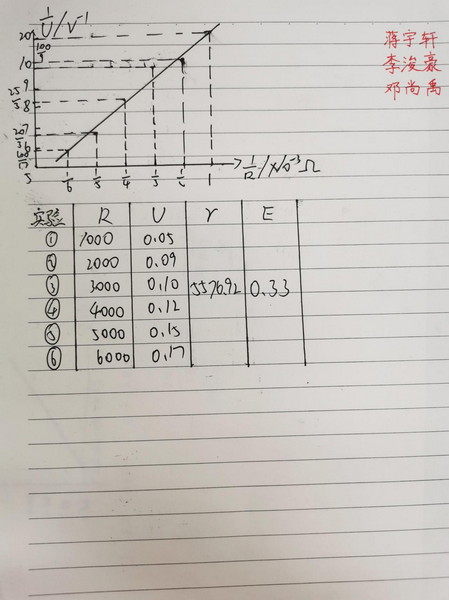 1/U /V⁻¹
20
100/9
10
25/3
20/3
1/6 1/5 1/4 1/3 1/2 1
1/R /×10⁻³Ω
蒋宇轩
李浚豪
邓尚禹
实验 R U r E
① 1000 0.05
② 2000 0.09
③ 3000 0.10 5576.92 0.33
④ 4000 0.12
⑤ 5000 0.15
⑥ 6000 0.17